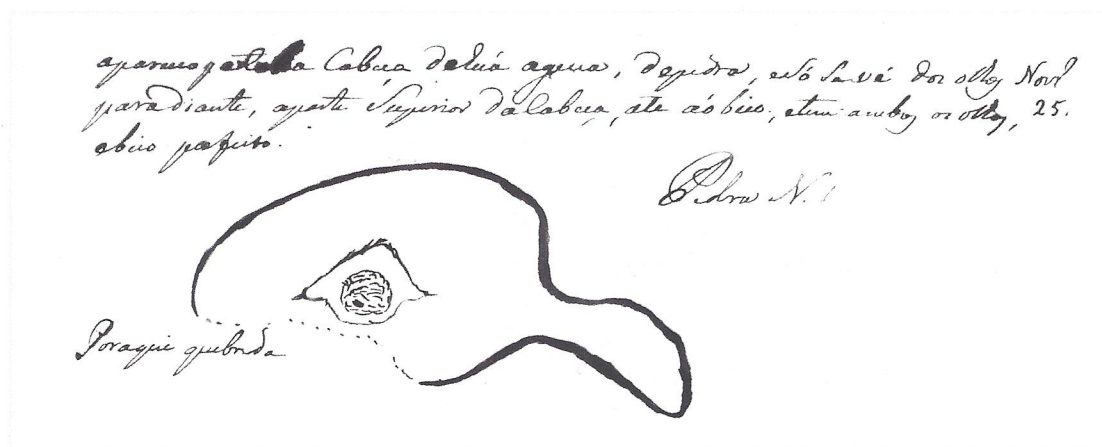 apareceo a Cabeça de huá aguia, de pedra, e só se vé dos olhos Novr.
para diante, a parte Superior da Cabeça, ate áo bico, e tem ambos os olhos, 25.
e bico perfeito.
Pedra N. 1
Por aqui quebrada